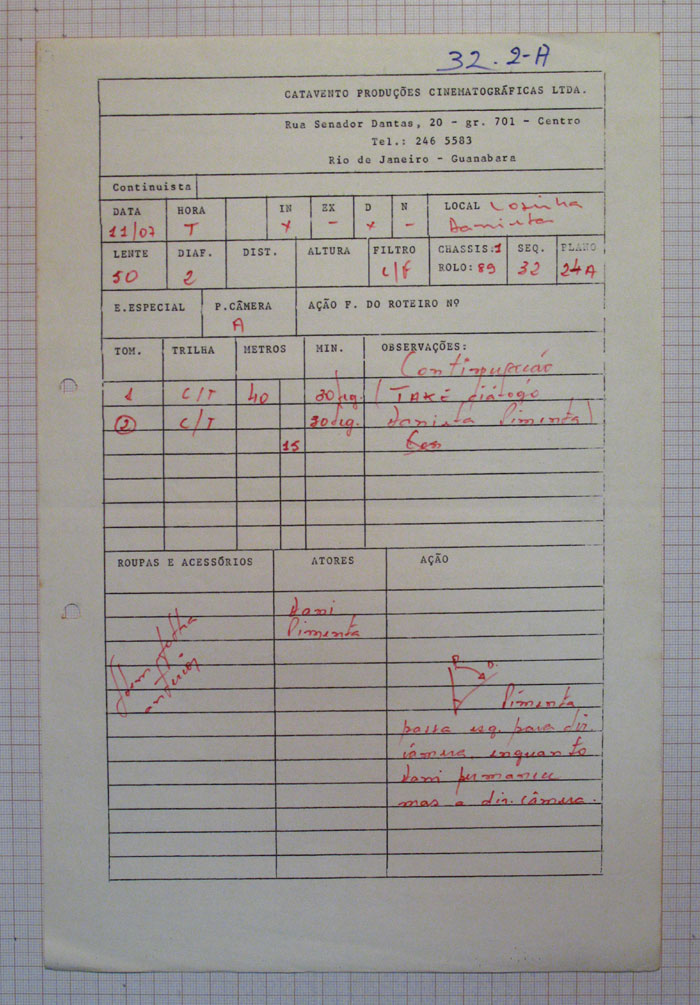 32.2-A
CATAVENTO PRODUÇÕES CINEMATOGRÁFICAS LTDA.
Rua Senador Dantas, 20 - gr. 701 - Centro
Tel.: 246 5583
Rio de Janeiro - Guanabara
Continuista
DATA HORA IN EX D N LOCAL Cozinha
11/07 T x - x -
LENTE DIAF. DIST. ALTURA FILTRO CHASSIS:1 SEQ. PLANO
50 2 C/F ROLO: 89 32 24A
E.ESPECIAL P.CÂMERA AÇÃO F. DO ROTEIRO Nº
A
TOM. TRILHA METROS MIN. OBSERVAÇÕES:
Continuação
1 C/T 40 30seg. (TAKE diálogo
2 C/T 30seg. Pimenta)
15
ROUPAS E ACESSÓRIOS ATORES AÇÃO
Dani
Pimenta
Idem folha
anterior
P. D.
Pimenta
passa esq. para dir
câmera, enquanto
Dani permanece
mas a dir. câmera.